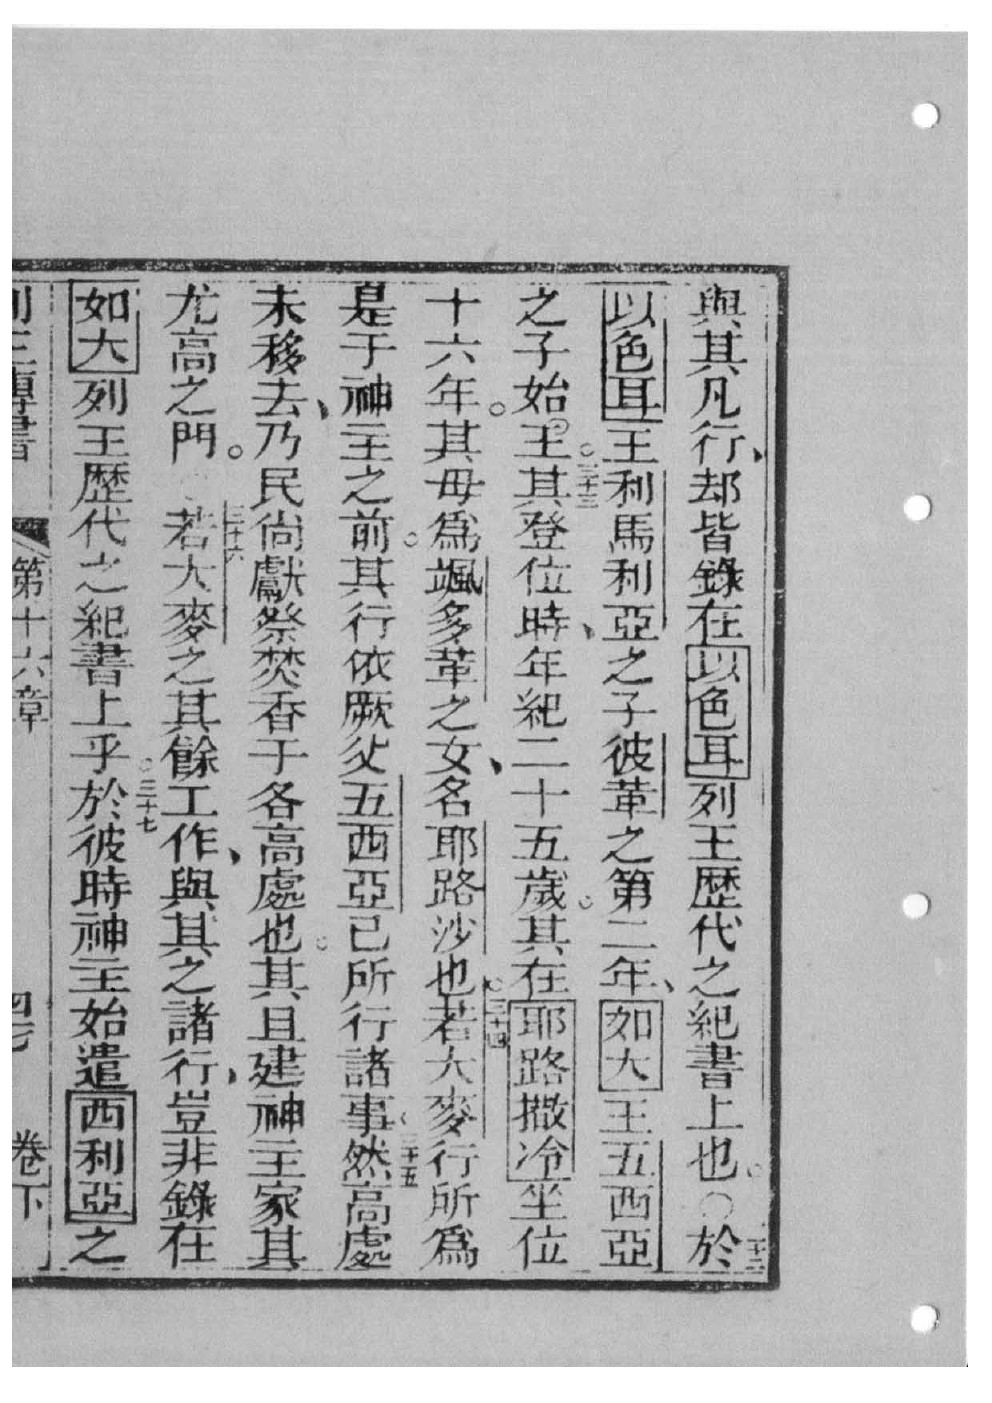 與其凡行、却皆錄在以色耳列王歷代之紀書上也。○於
以色耳王利馬利亞之子彼革之第二年、如大王五西亞
之子始王。三十三其登位時、年紀二十五歲。其在耶路撒冷坐位
十六年。其母爲颯多革之女、名耶路沙也。三十四若大麥行所爲
是于神主之前。其行依厥父五西亞已所行諸事。三十五然高處
未移去、乃民尚獻祭焚香于各高處也。其且建神主家其
尤高之門。三十六若大麥之其餘工作、與其之諸行、豈非錄在
如大列王歷代之紀書上乎。三十七於彼時神主始遣西利亞之
第十六章 卷下